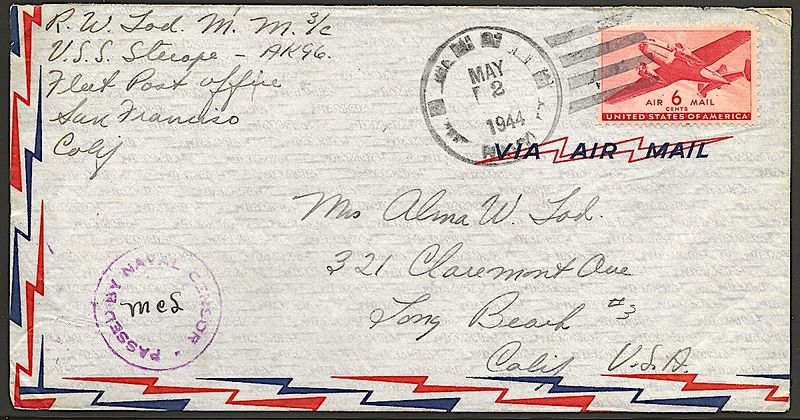 R. W. Tod. M. M. 3/c
U.S.S. Sterope - AK96.
Fleet Post office
San Francisco
Calif
MAY
2
1944
AIR 6 MAIL
CENTS
UNITED STATES OF AMERICA
VIA AIR MAIL
Mrs Alma W. Tod.
321 Claremont Ave
Long Beach #3
Calif U.S.A.
PASSED BY NAVAL CENSOR
mes